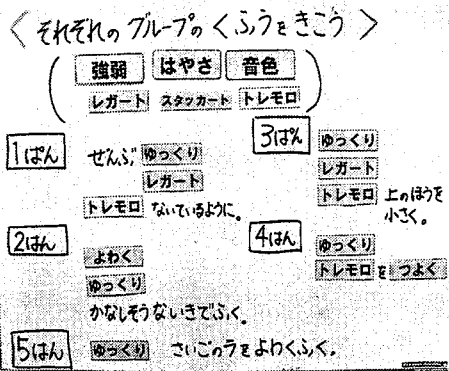 ＜ それぞれの グループの くふうを きこう ＞
強弱 はやさ 音色
レガート スタッカート トレモロ
1ぱん ぜんぶ ゆっくり
レガート
トレモロ ないているように。
2はん よわく
ゆっくり
かなしそうないきでふく。
3ぱん ゆっくり
レガート
トレモロ 上のほうを
小さく。
4はん ゆっくり
トレモロ を つよく
5はん ゆっくり さいごのラをよわくふく。